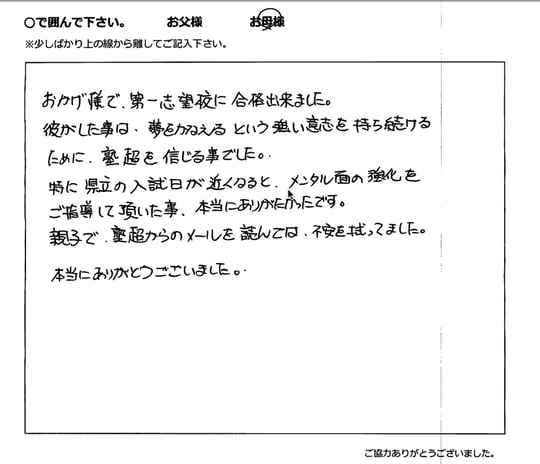 ○で囲んで下さい。 お父様 お母様
※少しばかり上の線から離してご記入下さい。
おかげ様で、第一志望校に合格出来ました。
彼がした事は、夢をかなえるという強い意志を持ち続ける
ために、塾超を信じる事でした。
特に県立の入試日が近くなると、メンタル面の強化を
ご指導して頂いた事、本当にありがたかったです。
親子で、塾超からのメールを読んでは、不安を拭ってました。
本当にありがとうございました。
ご協力ありがとうございました。